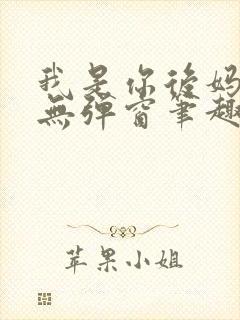 我是你後妈
無弹窗筆趣
苹果小姐